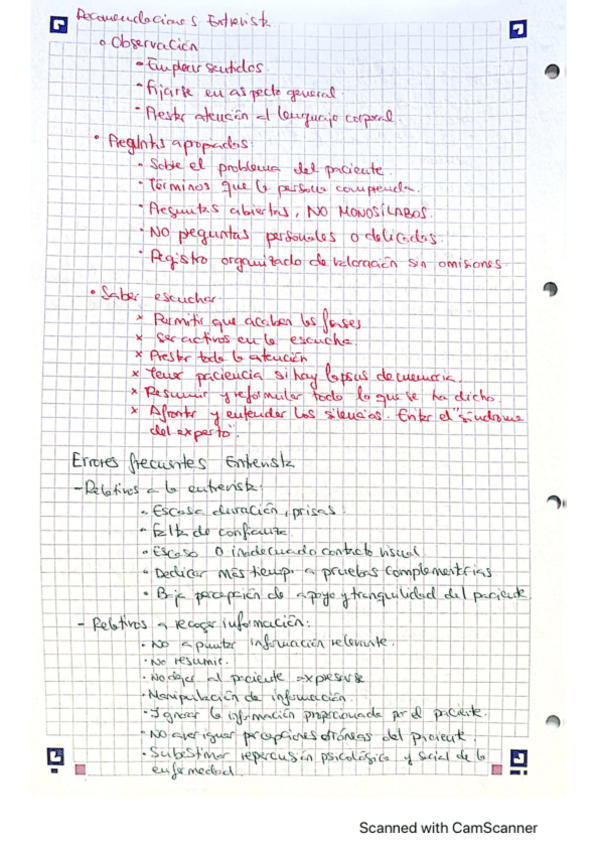 Recomendaciones Entrevista
Observación
- Emplear sentidos.
- Fijarse en aspecto general.
- Prestar atención al lenguaje corporal.
• Preguntas apropiadas:
- Sobre el problema del paciente.
- Términos que la persona comprenda.
- Preguntas abiertas, NO MONOSÍLABOS.
- NO peguntas personales o delicadas.
- Registro organizado de valoración sin omisiones
• Saber escuchar
x Permitir que acaben las frases
x Ser activos en la escucha.
x Prestar toda la atención
x Tener paciencia si hay lapsus de memoria.
x Resumir y reformular todo lo que se ha dicho.
x Afrontar y entender los silencios. Evitar el "síndrome
del experto".
Errores frecuentes Entrevista
- Relativos a la entrevista:
• Escasa duración, prisas.
• Falta de confianza
• Escaso o inadecuado contacto visual
• Dedicar más tiempo a pruebas complementarias
• Baja percepción de apoyo y tranquilidad del paciente.
- Relativos a recoger información:
• No apuntar información relevante.
• No resumir.
• No dejar al paciente expresarse
• Manipulación de información.
• Ignorar la información proporcionada por el paciente.
• NO averiguar percepciones erróneas del paciente.
• Subestimar repercusión psicológica y social de la
enfermedad.
Scanned with CamScanner